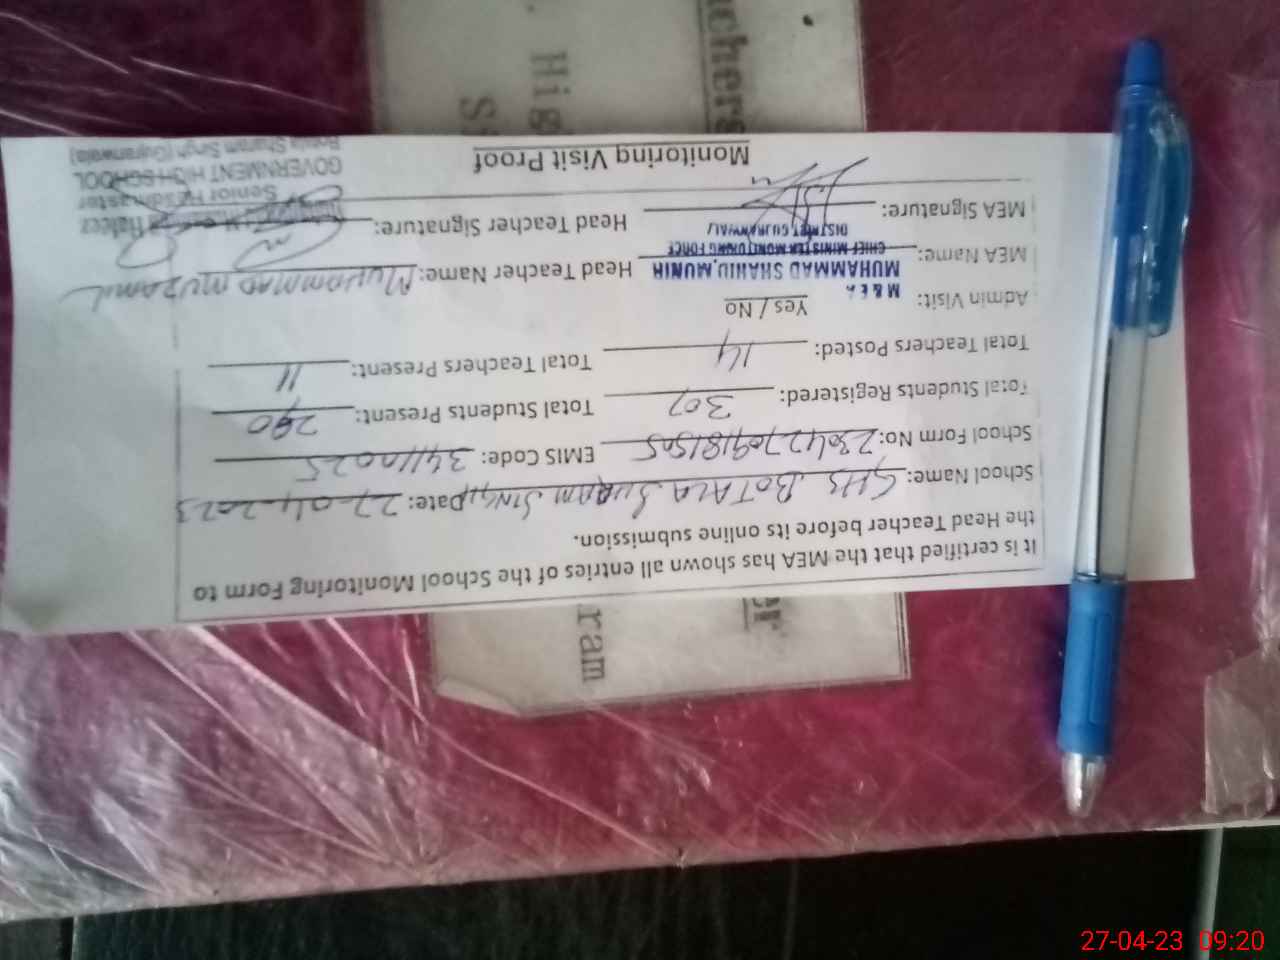 It is certified that the MEA has shown all entries of the School Monitoring Form to
the Head Teacher before its online submission.
School Name: GHS BOTALA SHRAM SINGH Date: 27-04-2023
School Form No: 23042709181505 EMIS Code: 34110025
Total Students Registered: 307 Total Students Present: 290
Total Teachers Posted: 14 Total Teachers Present: 11
Admin Visit: Yes / No
MEA Name: Head Teacher Name: MUHAMMAD MUZAMIL
M & E A
MUHAMMAD SHAHID MUNIR
CHIEF MINISTER MONITORING FORCE
DISTRICT GUJRANWALA
MEA Signature: Head Teacher Signature:
Hafeez
Senior Headmaster
GOVERNMENT HIGH SCHOOL
Botala Sharam Singh (Gujranwala)
Monitoring Visit Proof
achers
. Hig
ram
27-04-23 09:20